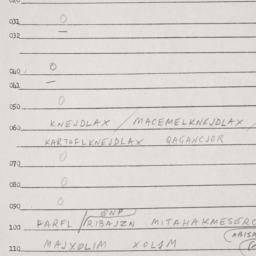 031 0
032 —
040 0
041 —
050 0
KNEJDLAX / MACEMELKNEJDLAX /
060
KARTOFLKNEJDLAX QAGANCJER
070 0
080 0
090 0
GNP
100 FARFL / RIBAJZN MITAHAKMESERC
110 MAJXOLIM XOLJM